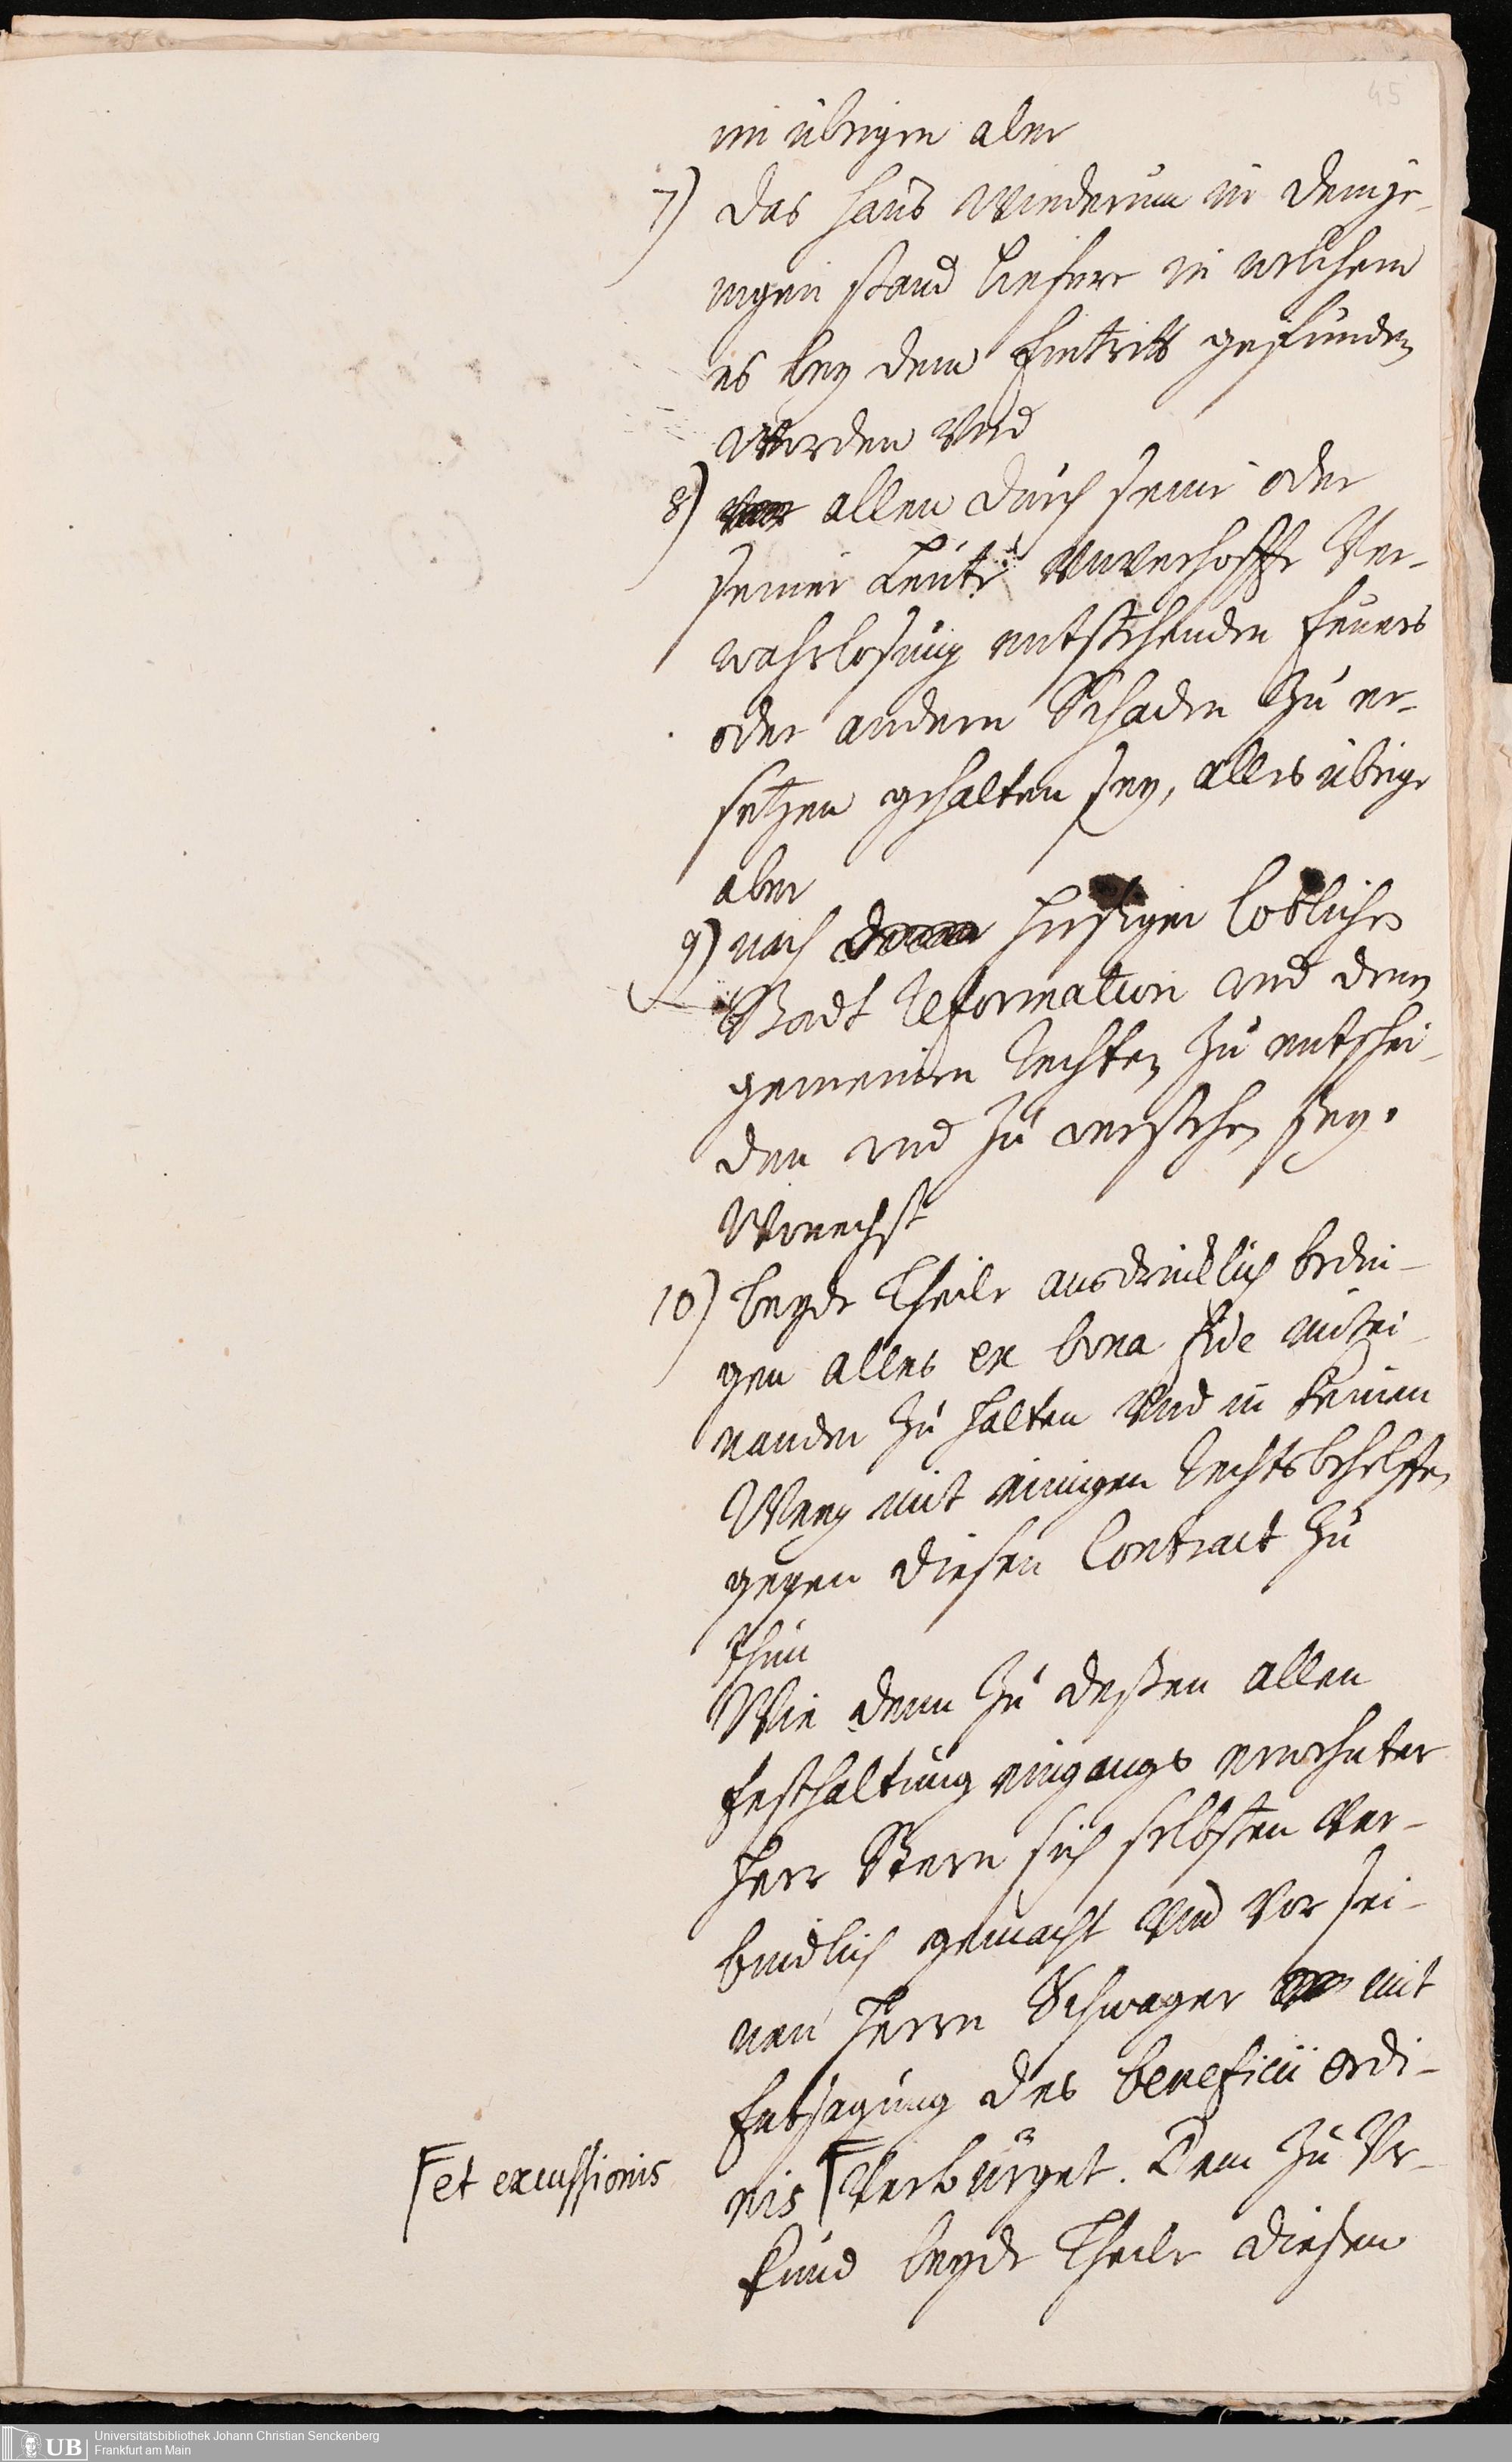 45
im übrigen aber
7) das Hauß wiederum in demje-
nigen stand liefere in welchem
es bey dem Eintritt gefunden
worden und
8) allen durch seine oder
seiner Leute unverhoffte Ver-
wahrlosung entstehenden Feuers
oder andern Schaden zu er-
setzen gehalten sey, alles übrige
aber
9) nach hiesiger loblichen
Stadt Reformation und denen
gemeinen Rechten zu entschei-
den und zu verstehen sey.
Wonechst
10) beyde Theile ausdrücklich bedin-
gen alles ex bona fide mitei-
nander zu halten und in keinen
Weeg mit einigen Rechtsbehelffen
gegen diesen Contract zu
thun
Wie denn zu deßen allen
festhaltung eingangs erwehnter
Herr Stern sich selbsten ver-
bindlich gemacht und vor sei-
nen Herrn Schwager mit
Entsagung des beneficii ordi-
nis verbürget. Dem zu Ur-
et excussionis
kund beyde Theile diesen
Universitätsbibliothek Johann Christian Senckenberg
UB Frankfurt am Main